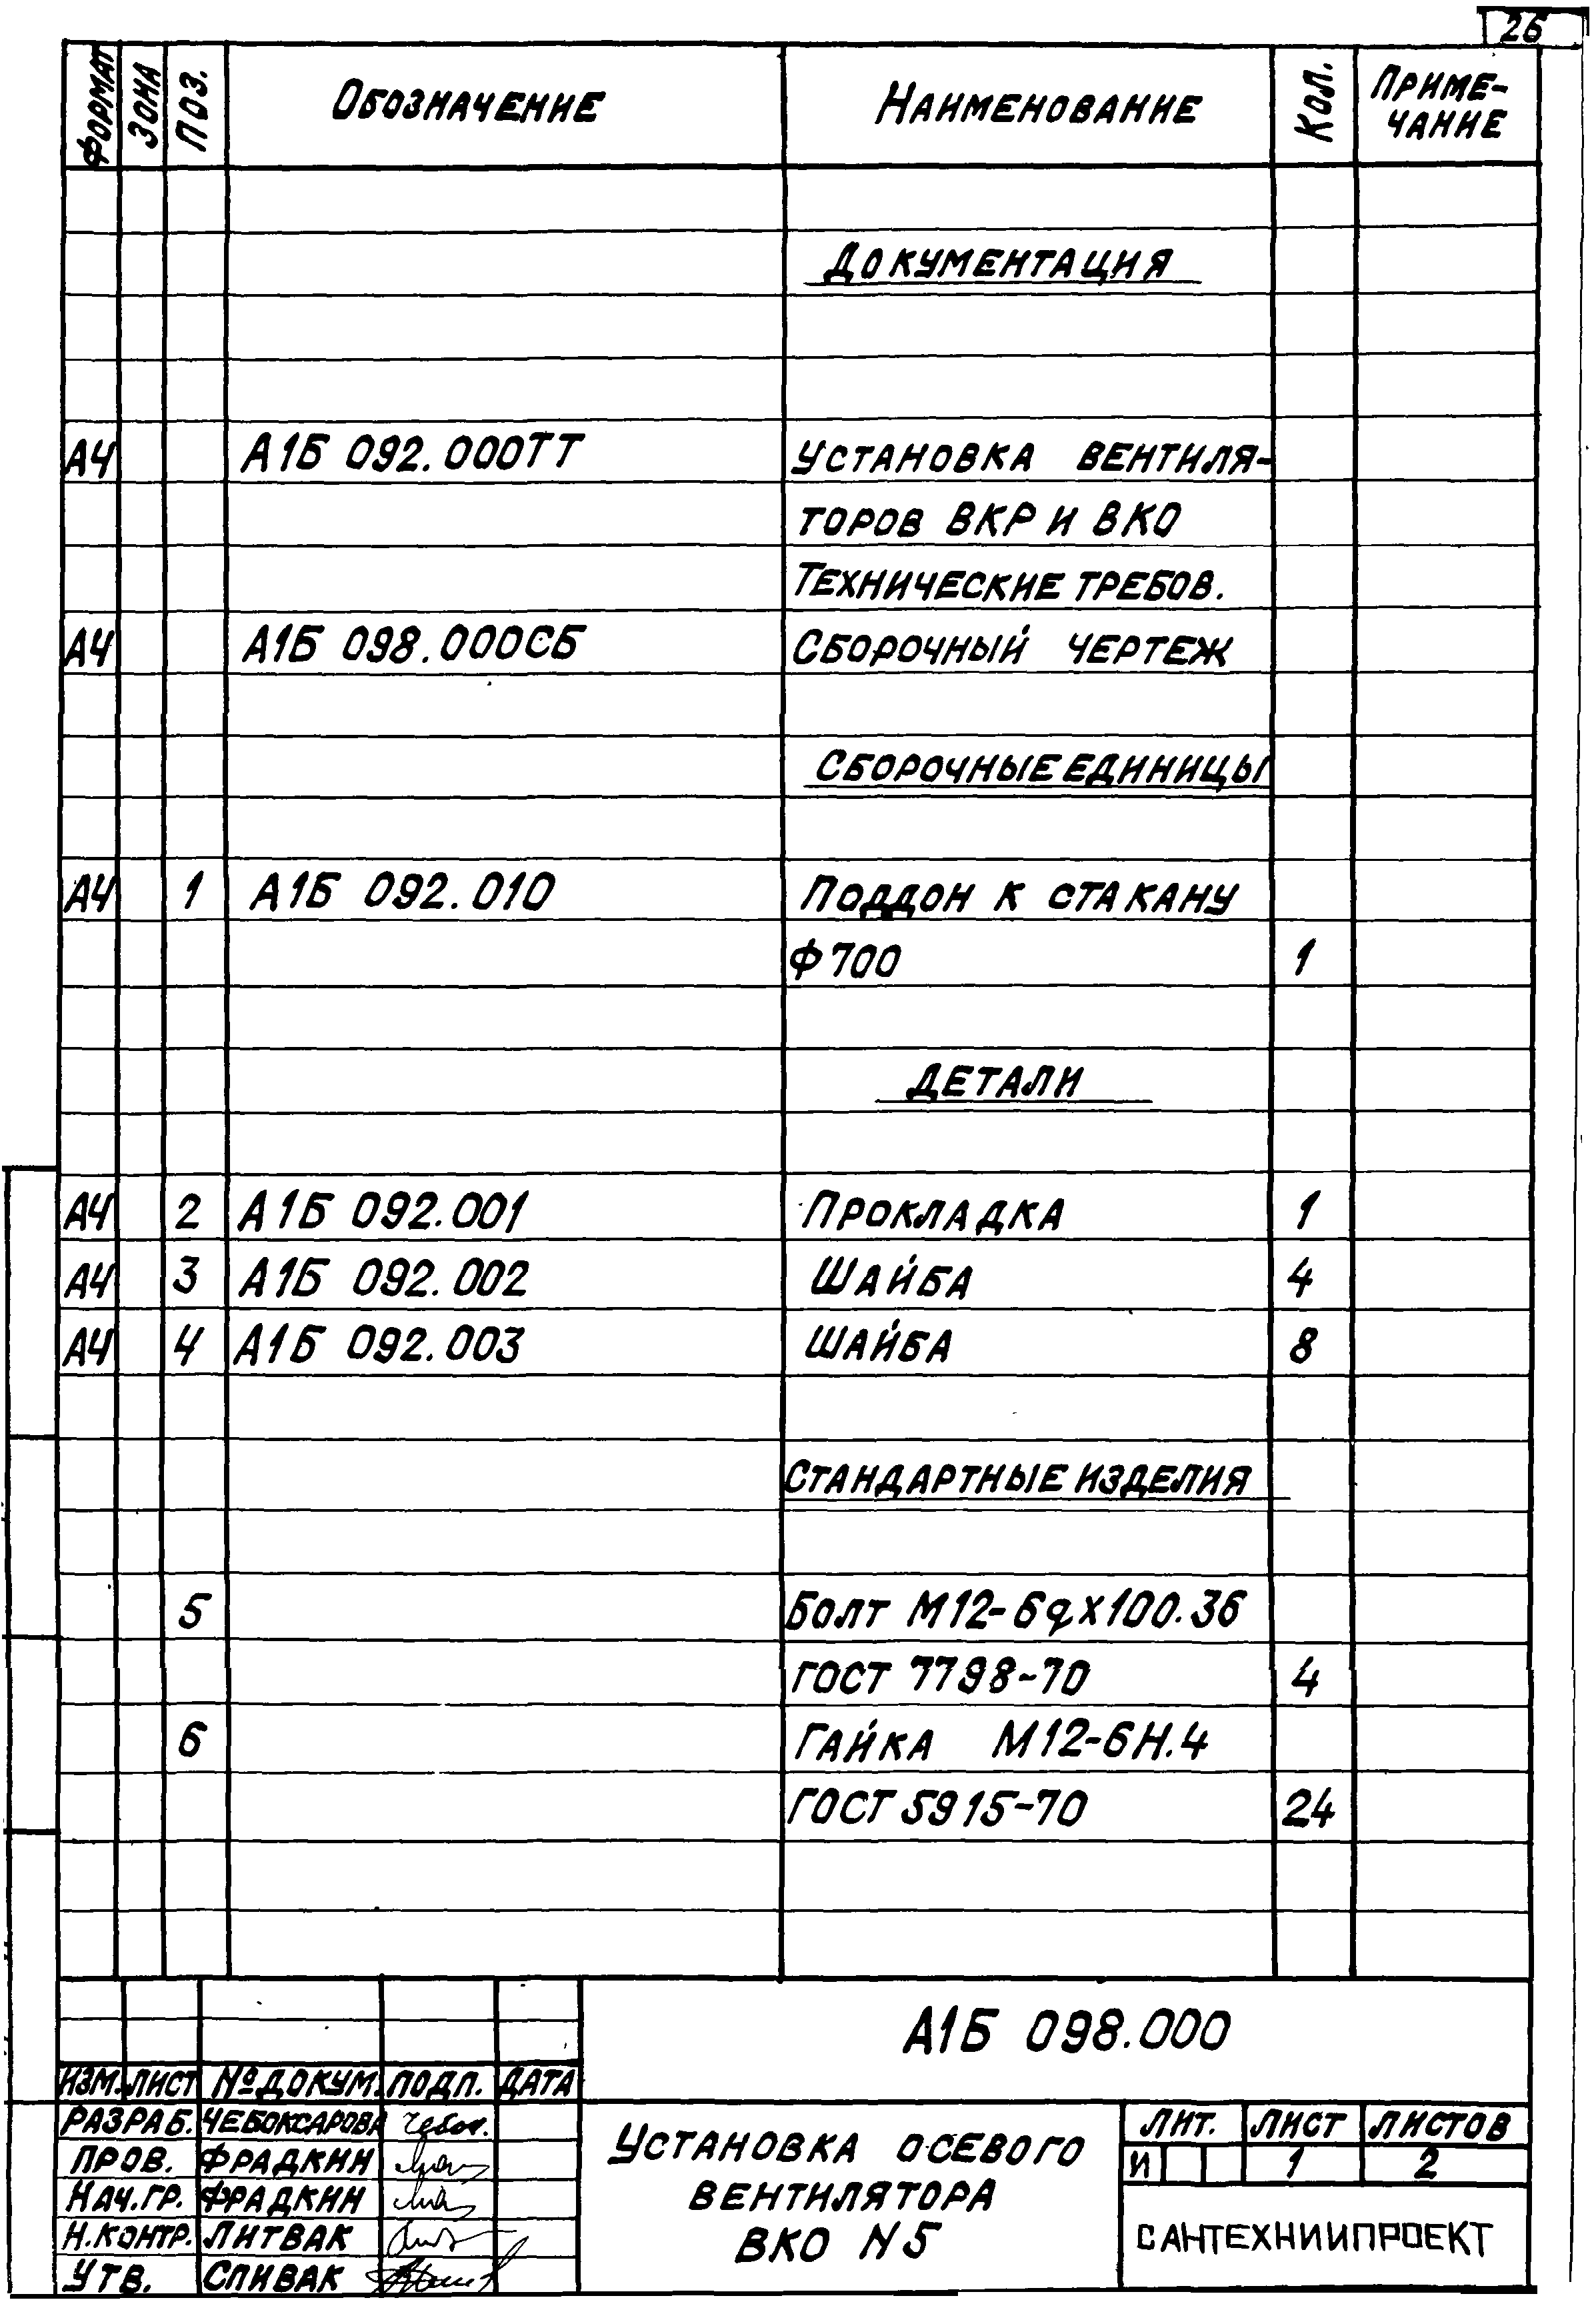 26
ФОРМАТ ЗОНА ПОЗ. ОБОЗНАЧЕНИЕ НАИМЕНОВАНИЕ КОЛ. ПРИМЕ-
ЧАНИЕ
ДОКУМЕНТАЦИЯ
А4 А1Б 092.000ТТ УСТАНОВКА ВЕНТИЛЯ-
ТОРОВ ВКР И ВКО
ТЕХНИЧЕСКИЕ ТРЕБОВ.
А4 А1Б 098.000СБ СБОРОЧНЫЙ ЧЕРТЕЖ
СБОРОЧНЫЕ ЕДИНИЦЫ
А4 1 А1Б 092.010 ПОДДОН К СТАКАНУ
Ф700 1
ДЕТАЛИ
А4 2 А1Б 092.001 ПРОКЛАДКА 1
А4 3 А1Б 092.002 ШАЙБА 4
А4 4 А1Б 092.003 ШАЙБА 8
СТАНДАРТНЫЕ ИЗДЕЛИЯ
5 БОЛТ М12-6gх100.36
ГОСТ 7798-70 4
6 ГАЙКА М12-6Н.4
ГОСТ 5915-70 24
А1Б 098.000
ИЗМ. ЛИСТ № ДОКУМ. ПОДП. ДАТА
РАЗРАБ. ЧЕБОКСАРОВА Чебок.
ПРОВ. ФРАДКИН
НАЧ.ГР. ФРАДКИН
Н.КОНТР. ЛИТВАК
УТВ. СПИВАК
УСТАНОВКА ОСЕВОГО
ВЕНТИЛЯТОРА
ВКО N5
ЛИТ. ЛИСТ ЛИСТОВ
И 1 2
САНТЕХНИИПРОЕКТ